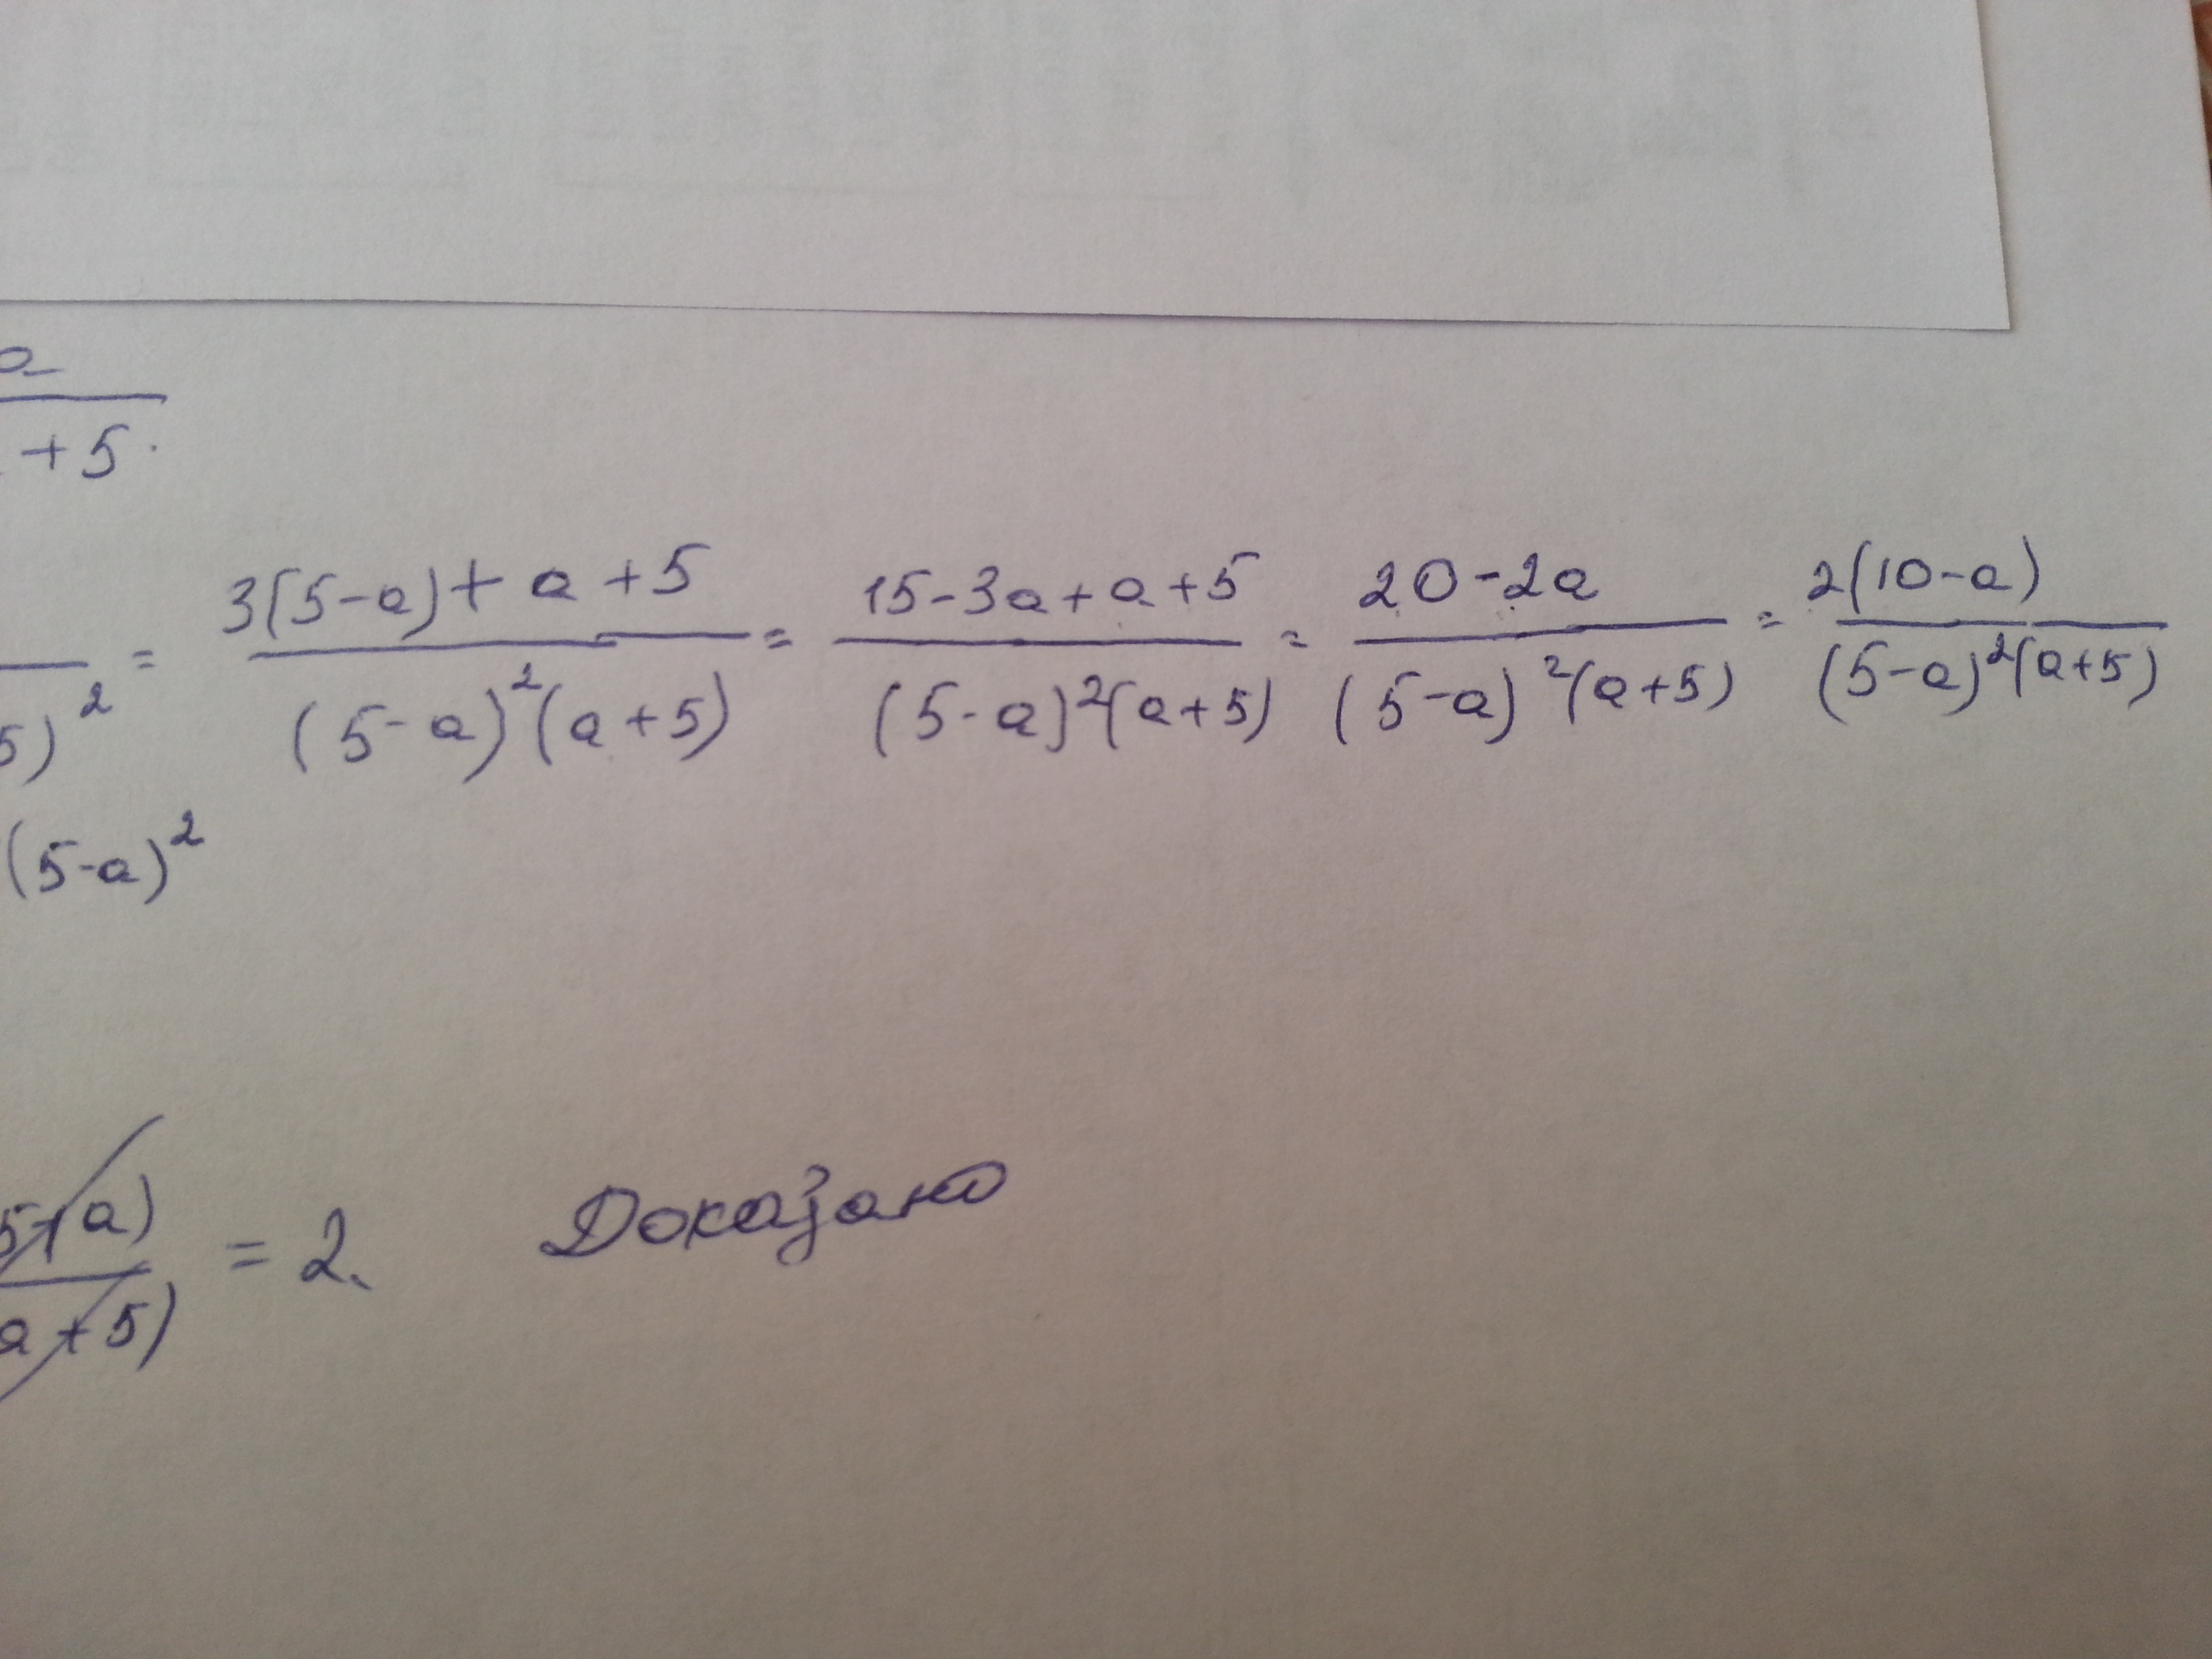 a
+5.
5)² = 3(5-a)+a+5 / (5-a)²(a+5) = 15-3a+a+5 / (5-a)²(a+5) = 20-2a / (5-a)²(a+5) = 2(10-a) / (5-a)²(a+5)
(5-a)²
5+a) / a+5) = 2. Доказано